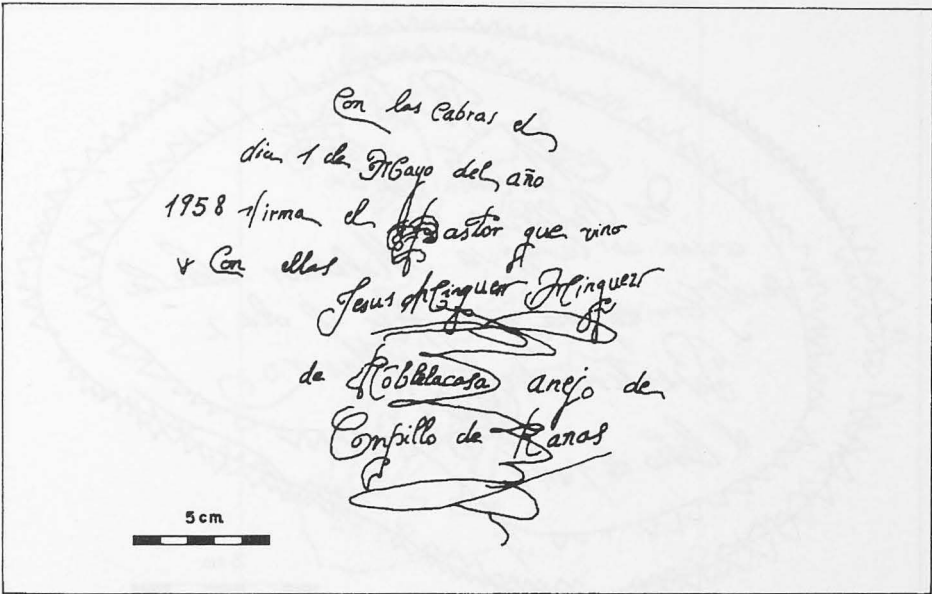 Con las Cabras el
dia 1 de Mayo del año
1958 firma el Pastor que vino
y Con ellas
Jesus Minguez Minguez
de Roblelacasa anejo de
Campillo de Ranas
5 cm